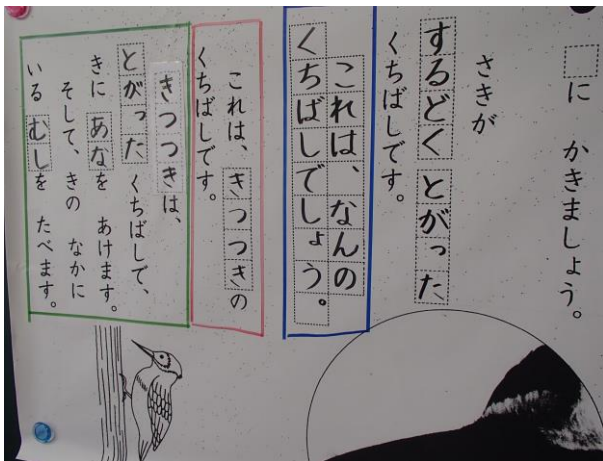 □に　かきましょう。
さきが
するどく　とがった
くちばしです。
これは、なんの
くちばしでしょう。
これは、きつつきの
くちばしです。
きつつきは、
とがった　くちばしで、
きに　あなを　あけます。
そして、きの　なかに
いる　むしを　たべます。